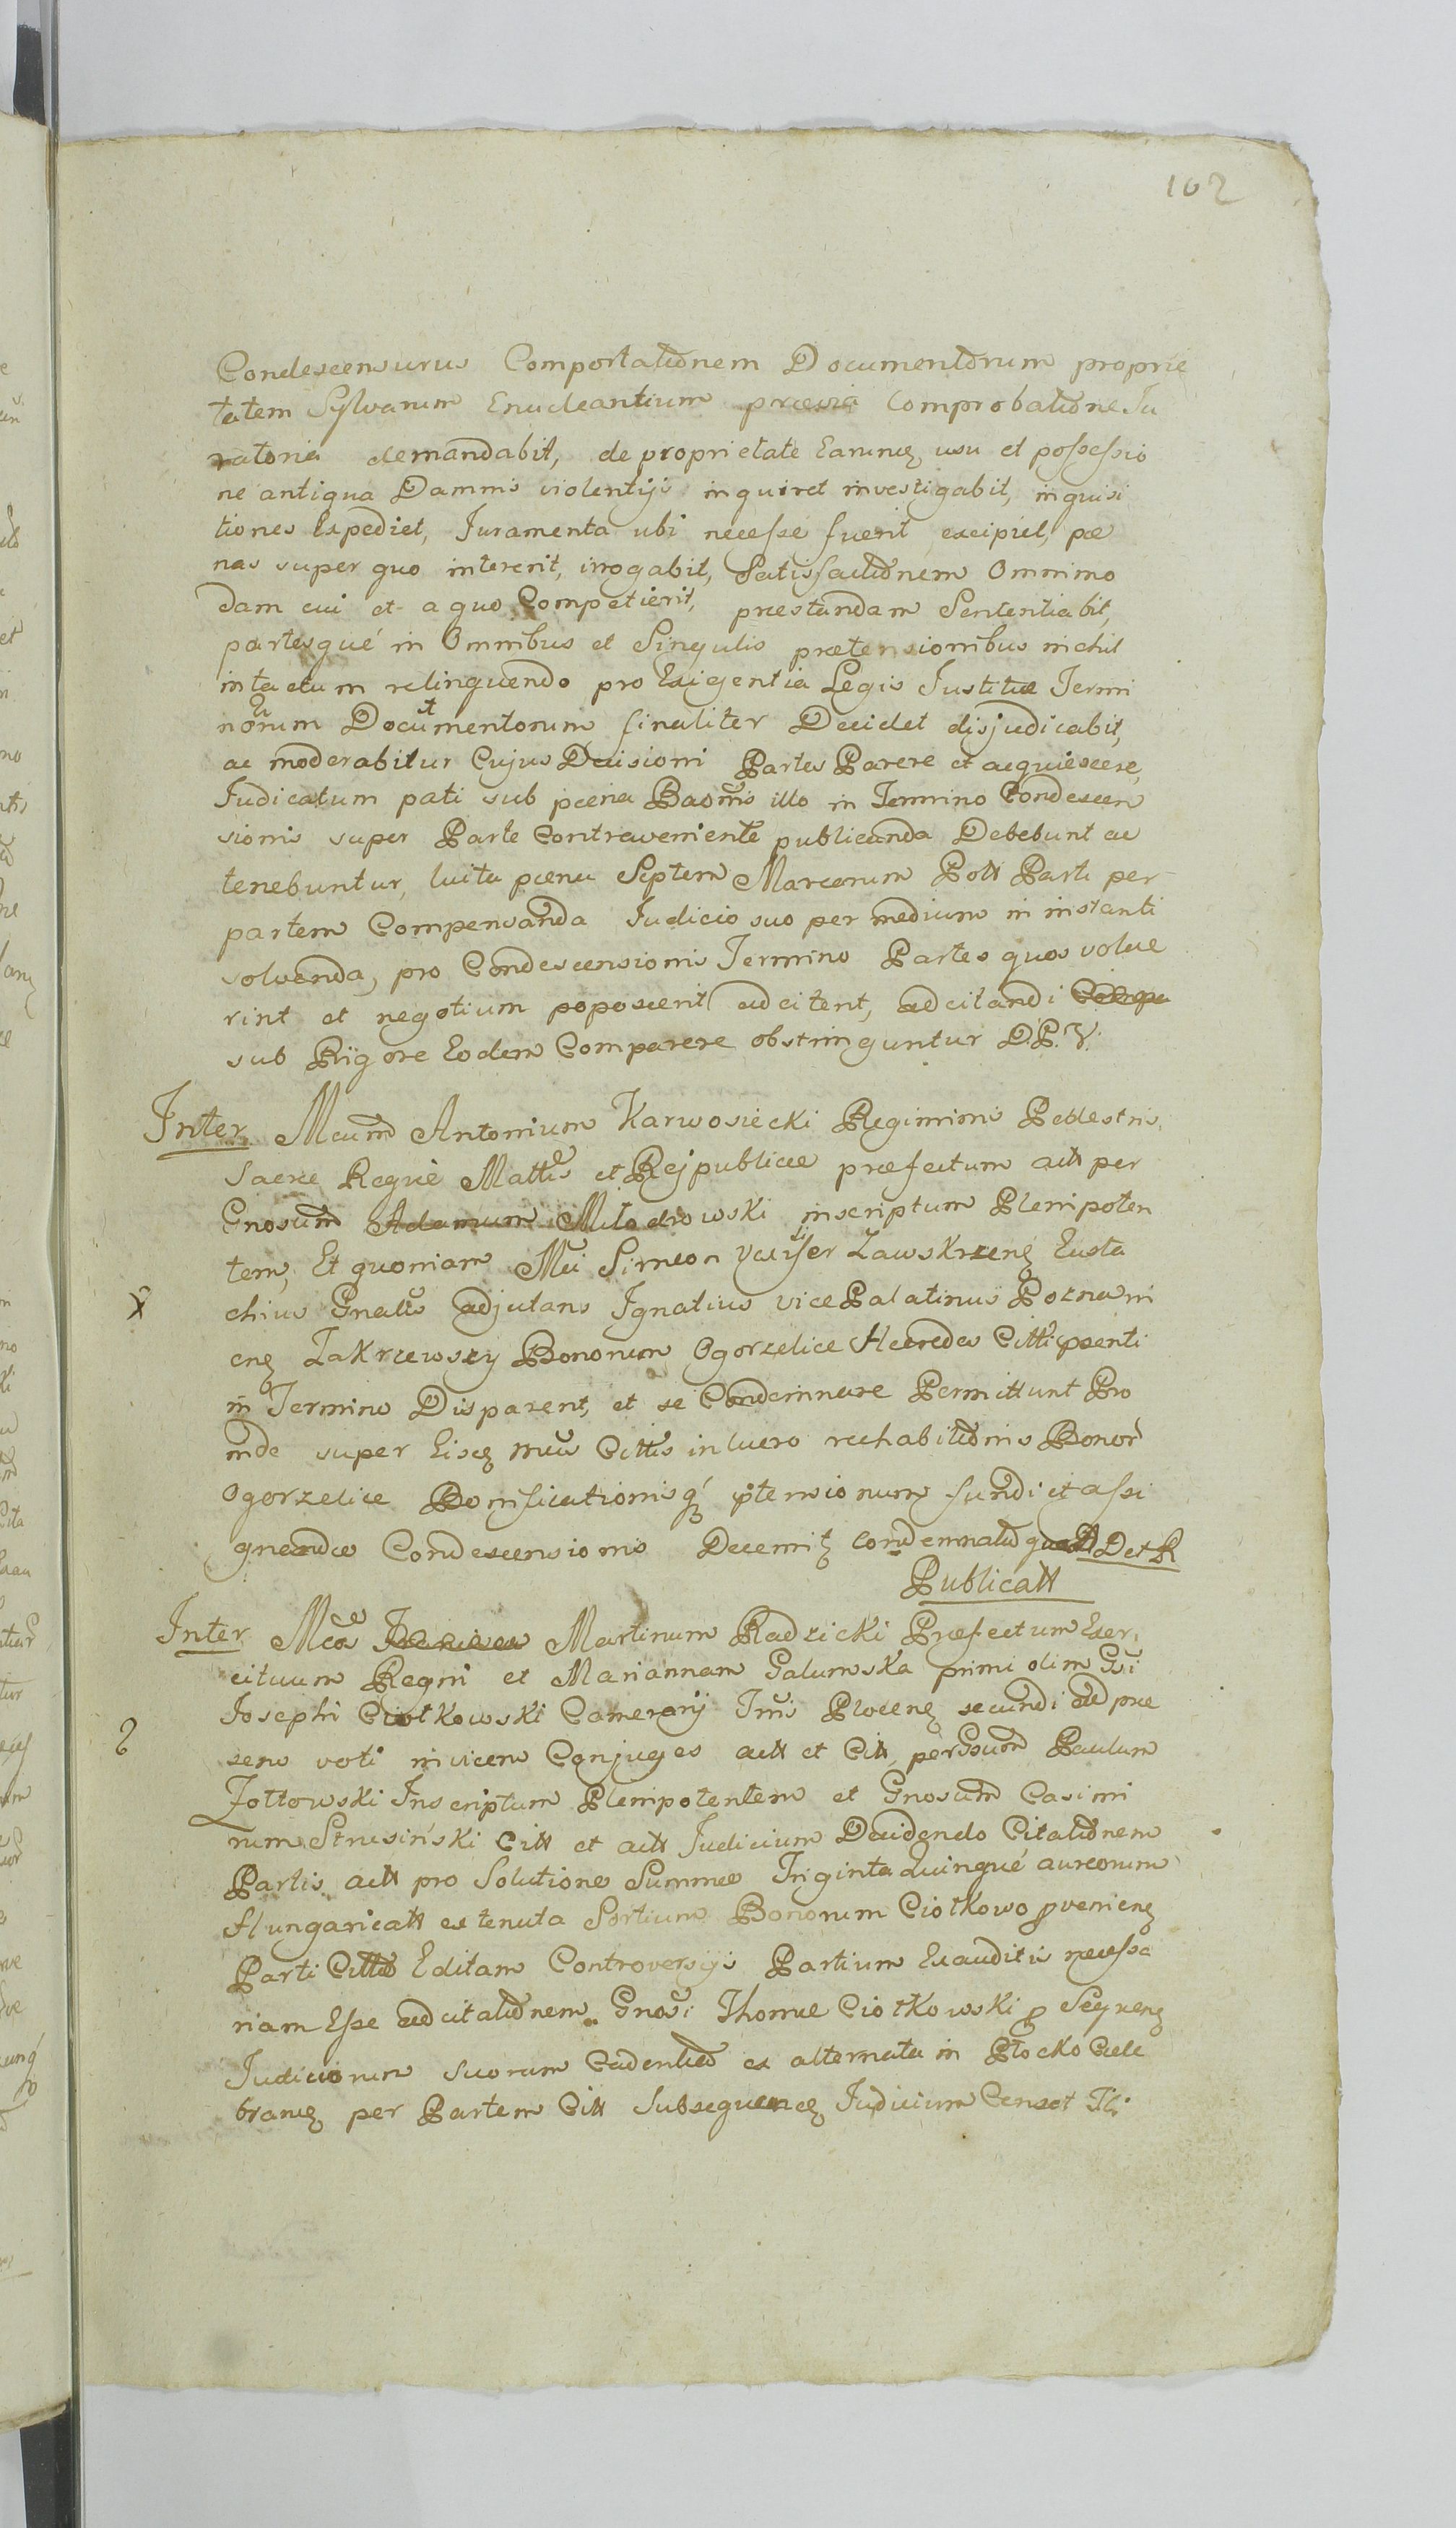 102
Condescensurus Comportatõnem Documentõrum proprie
tatem Sylvarum Enucleantium prævia Comprobatiõne Ju
ratoria demandabit, de proprietate Earumq usu et possessio
ne antiqua Damnis violentijs inquiret investigabit, inquisi
tiones Expediet, Juramenta ubi necesse fuerit excipiet, pæ
nas super quo intererit, irrogabit, Satisfactiõnem Omnimo
dam cui et a quo Competierit, præstandam Sententiabit,
partesqué in Omnibus et Singulis prætensionibus nichil
intactum relinquendo pro Exigentia Legis Justitiæ Termi
norum et Documentorum finaliter Decidet disjudicabit,
ac moderabitur Cujus Decisioni Partes Parere et acquiescere,
Judicatum pati sub pæna Baõnis illo in Termino Condescen
sionis super Parte Contraveniente publicanda Debebunt ac
tenebuntur, luita pæna Septem Marcarum Poll Parti per
partem Compensanda Judicio suo per medium in instanti
solvenda, pro Condescensionis Termino Partes quos volue
rint et negotium poposcerit adcitent, adcitandi
sub Rigore Eodem Comparere obstringuntur D.P.V.
Inter Mcum Antonium Karwosiecki Regiminis Pedestris
Sacræ Regiæ Mattis et Rejpublicæ præfectum act per
Gnosum Adamum Młodzowski inscriptum Plenipoten
tem, Et quoniam Mci Simeon Vexifer Zawskrzenq Eusta
chius Gnalis adjutans Ignatius vice Palatinus Poznani
enq Zakrzewscy Bonorum Ogorzelice Hæredes Citti psenti
in Termino Disparent, et se Condemnare Permittunt Pro
inde super Eisq Mcis Cittis in lucro rehabitiõnis Bonor
Ogorzelice Bonificationisq ptensionum fundi et assi
gnandæ Condescensionis Decernitq Condemnatõ Det R
Publicatt
Inter Mcos Martinum Radzicki Præfectum Exer
cituum Regni et Mariannam Galumska primi olim Gsi
Josephi Ciołkowski Camerarij Tris Plocenq secundi ad præ
sens voti invicem Conjuges act et Citt per Gsum Paulum
Zołtowski Inscriptum Plenipotentem et Gnosum Casimi
rum Strusiński Citt et act Judicium Decidendo Citatiõnem
Partis act pro Solutione Summæ Triginta Quinqué aureorum
Hungaricall ex tenuta Sortium Bonorum Ciołkowo pvenienq
Parti Citte Editam Controversijs Partium Exauditis necessa
riam Esse adcitatiõnem Gnosi Thomæ Ciołkowski p Seqvenq
Judiciorum suorum Cadentia ex alternata in Płocko Cele
branq per Partem Citt Subsequenq Judicium Censet